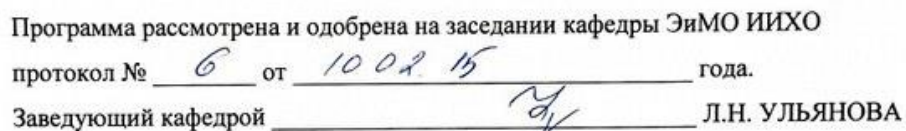 Программа рассмотрена и одобрена на заседании кафедры ЭиМО ИИХО
протокол № 6 от 10 02. 15 года.
Заведующий кафедрой Л.Н. УЛЬЯНОВА